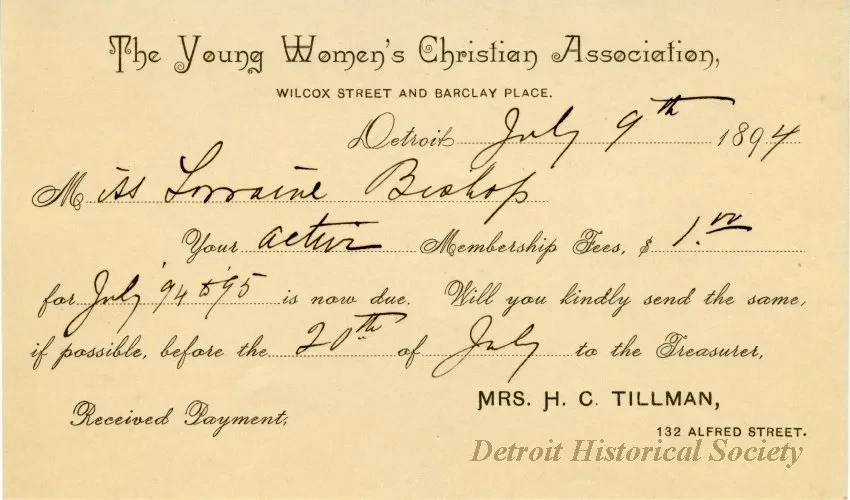 The Young Women's Christian Association,
WILCOX STREET AND BARCLAY PLACE.
Detroit July 9th 1894
Miss Lorraine Bishop
Your active Membership Fees, $ 1.00
for July '94 to '95 is now due. Will you kindly send the same,
if possible, before the 20th of July to the Treasurer,
MRS. H. C. TILLMAN,
Received Payment,
132 ALFRED STREET.
Detroit Historical Society